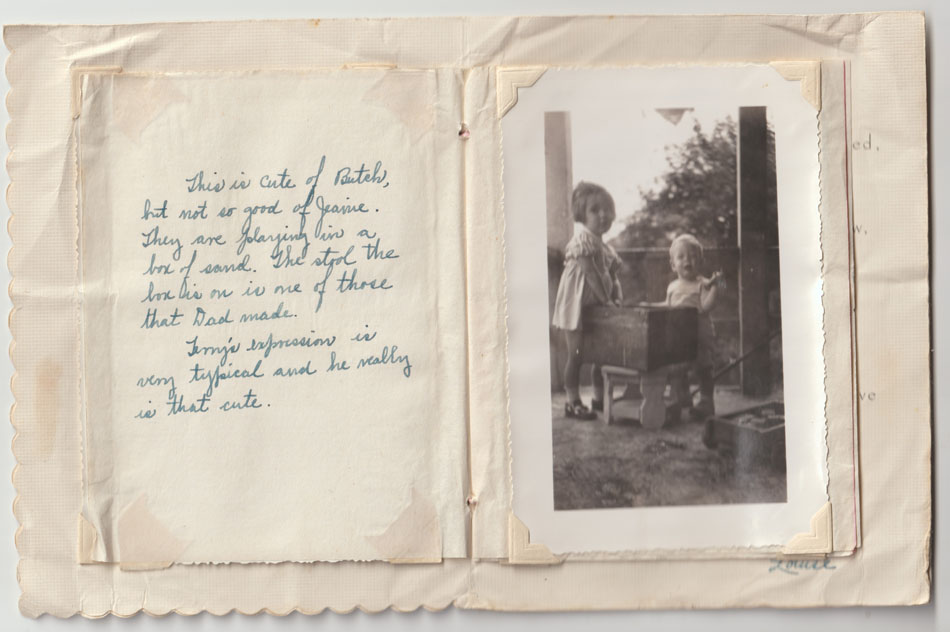 This is cute of Butch,
but not so good of Jeanie.
They are playing in a
box of sand. The stool the
box is on is one of those
that Dad made.
Terry's expression is
very typical and he really
is that cute.
ed.
w.
ve
Louise